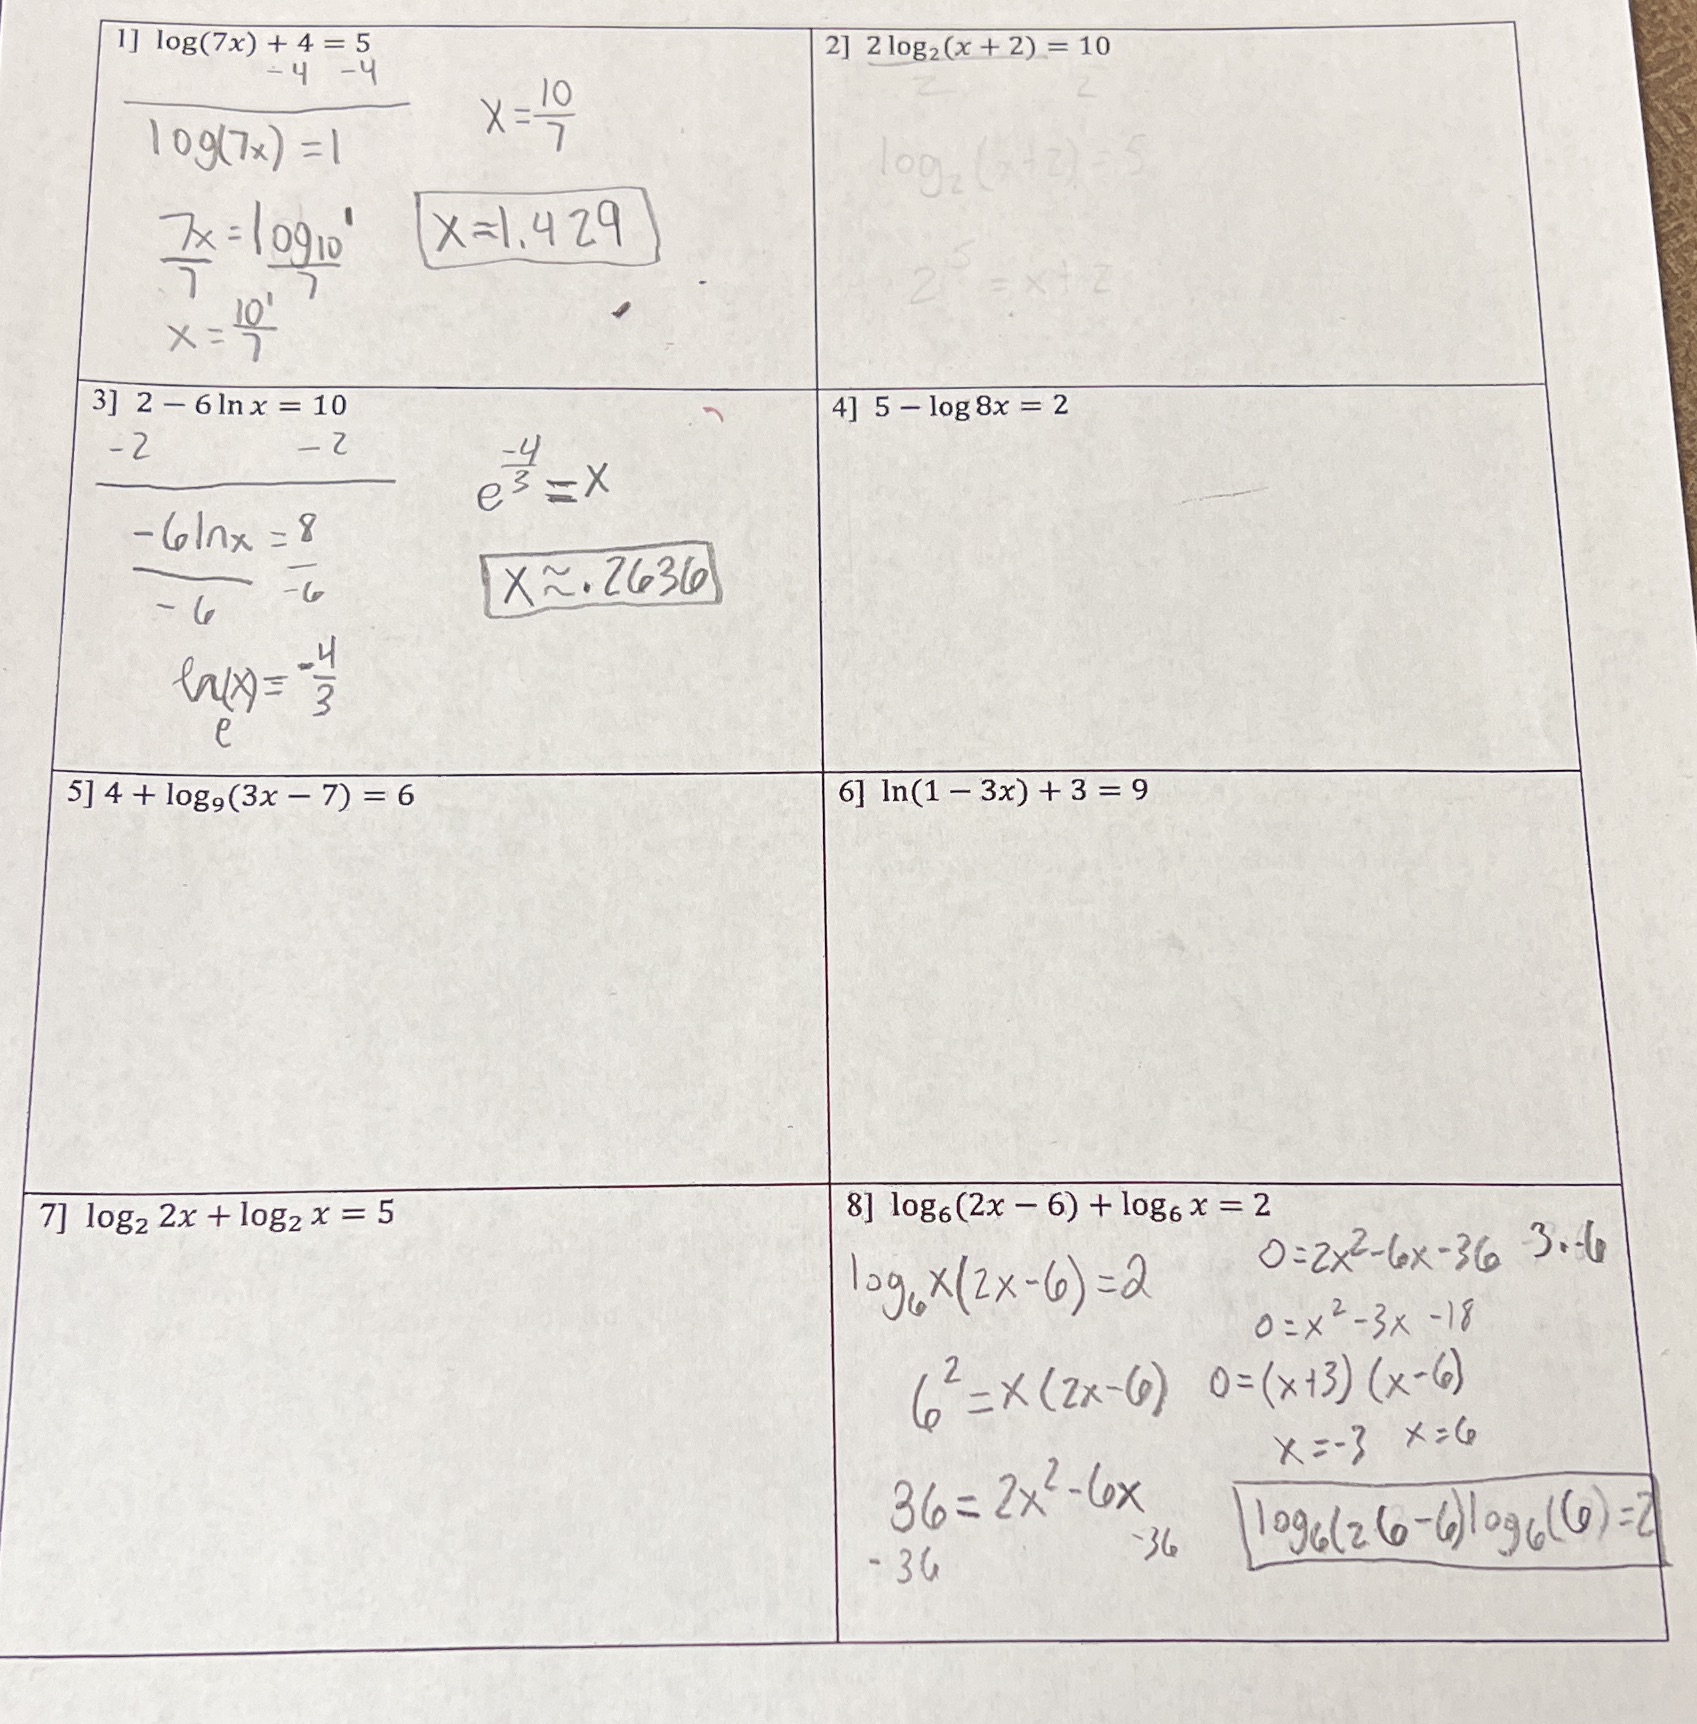 1] log(7x) + 4 = 5
-4 -4
log(7x) = 1
7x = log10¹
7 7
x = 10¹/7
x = 10/7
x ≈ 1.429
2] 2 log₂(x + 2) = 10
2 2
log₂(x+2) = 5
2⁵ = x+2
3] 2 − 6 ln x = 10
-2 -2
-6lnx = 8
-6 -6
ln(x) = -4/3
e
e^(-4/3) = x
x ≈ .2636
4] 5 − log 8x = 2
5] 4 + log₉(3x − 7) = 6
6] ln(1 − 3x) + 3 = 9
7] log₂ 2x + log₂ x = 5
8] log₆(2x − 6) + log₆ x = 2
log₆x(2x-6) = 2
6² = x(2x-6)
36 = 2x²-6x
-36 -36
0=2x²-6x-36 3·-6
0=x²-3x-18
0=(x+3)(x-6)
x=-3 x=6
log₆(26-6)log₆(6)=2